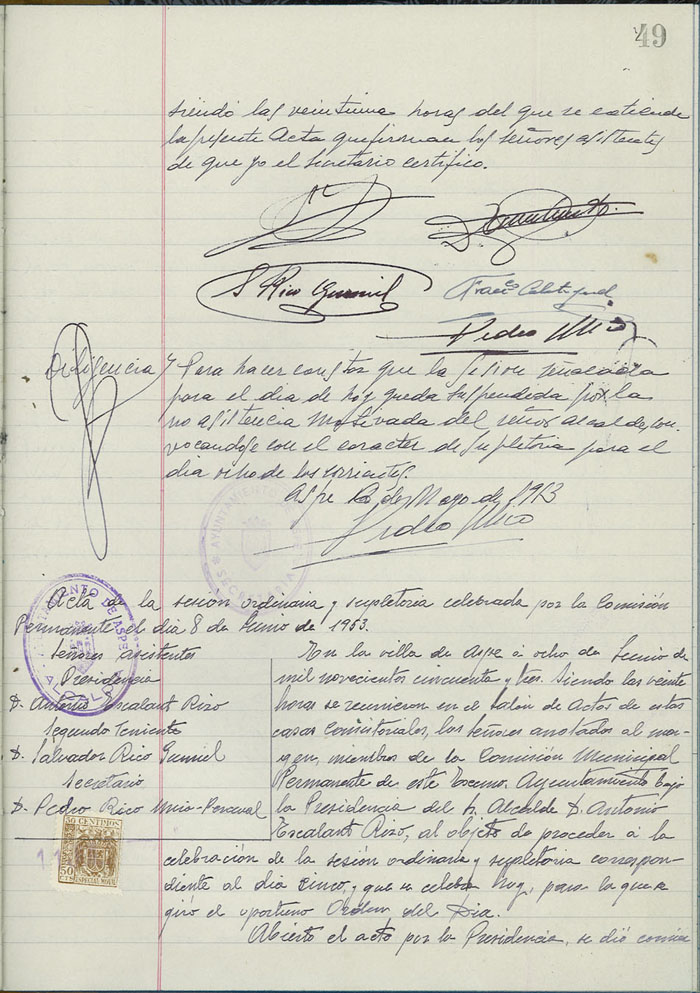 49
siendo las veintiuna horas del que se extiende
la presente Acta que firman los señores asistentes
de que yo el Secretario certifico.
S Rico Gumiel
Pedro Rico
Diligencia Para hacer constar que la sesion señalada
para el dia de hoy queda suspendida por la
no asistencia motivada del señor alcalde, con
vocandose con el caracter de supletoria para el
dia ocho de los corrientes.
Aspe de Mayo de 1953
Pedro Rico
AYUNTAMIENTO DE
SECRETARIA
Acta de la sesion ordinaria y supletoria celebrada por la Comisión
Permanente el dia 8 de Junio de 1953.
AYUNTAMIENTO DE ASPE
ALCALDIA
Señores asistentes
Presidencia
D. Antonio Escalant Rizo
Segundo Teniente
D. Salvador Rico Gumiel
Secretario
D. Pedro Rico Mira-Perceval
En la villa de Aspe a ocho de Junio de
mil novecientos cincuenta y tres. Siendo las veinte
horas se reunieron en el Salon de Actos de estas
casas Consistoriales, los señores anotados al mar-
gen, miembros de la Comisión Municipal
Permanente de este Excmo. Ayuntamiento bajo
la Presidencia del Sr. Alcalde D. Antonio
Escalant Rizo, al objeto de proceder a la
celebración de la sesión ordinaria y supletoria correspon-
diente al dia cinco, y que se celebra hoy, para la que se
giró el oportuno Orden del Dia.
Abierto el acto por la Presidencia, se dió comien
50 CENTIMOS
50 CTS
ESPECIAL MOVIL